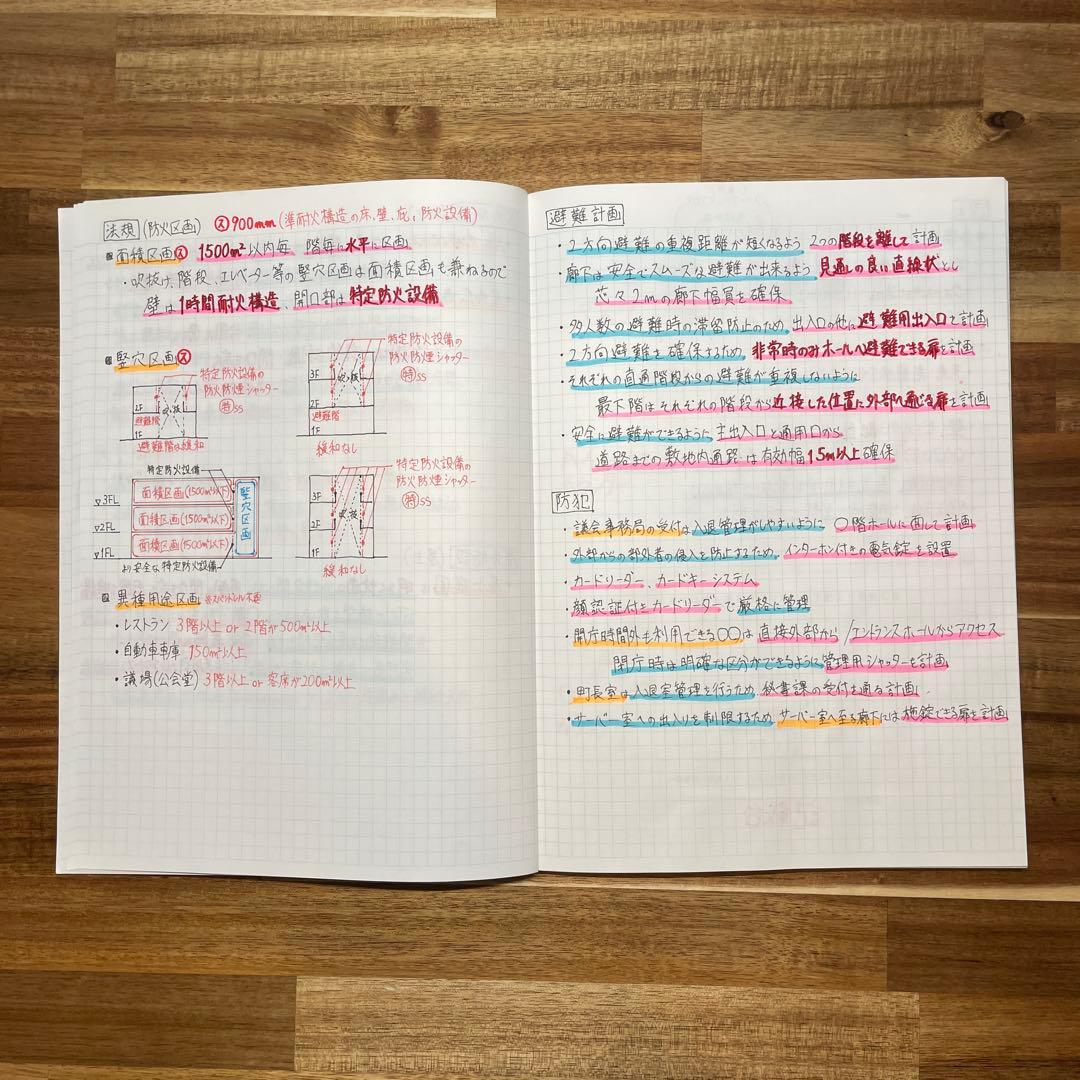 法規 (防火区画) ㋜900mm (準耐火構造の床、壁、庇、防火設備)
面積区画㋜ 1500m²以内毎 階毎に水平に区画
・吹抜け、階段、エレベーター等の竪穴区画は面積区画も兼ねるので
壁は1時間耐火構造、開口部は特定防火設備
竪穴区画㋜
特定防火設備の
防火防煙シャッター
㊕SS
吹抜
2F
避難階
1F
避難階は緩和
特定防火設備の
防火防煙シャッター
㊕SS
3F
吹抜
2F
避難階
1F
緩和なし
特定防火設備
▽3FL
面積区画(1500m²以下)
▽2FL
面積区画(1500m²以下)
▽1FL
面積区画(1500m²以下)
竪穴区画
より安全な特定防火設備
特定防火設備の
防火防煙シャッター
㊕SS
3F
吹抜
2F
1F
緩和なし
異種用途区画 ※スパンドレル不要
・レストラン 3階以上 or 2階が500m²以上
・自動車車庫 150m²以上
・議場(公会堂) 3階以上 or 客席が200m²以上
避難計画
・2方向避難の重複距離が短くなるよう 2つの階段を離して計画
・廊下は安全でスムーズな避難が出来るよう 見通しの良い直線状とし
芯々2mの廊下幅員を確保
・多人数の避難時の滞留防止のため、出入口の他に避難用出入口を計画
・2方向避難を確保するため、非常時のみホールへ避難できる扉を計画
・それぞれの直通階段からの避難が重複しないように
最下階はそれぞれの階段から近接した位置に外部へ通じる扉を計画
・安全に避難ができるように 主出入口と通用口から
道路までの敷地内通路は有効幅1.5m以上確保
防犯
・議会事務局の受付は入退管理がしやすいように 〇階ホールに面して計画
・外部からの部外者の侵入を防止するため、インターホン付きの電気錠を設置
・カードリーダー、カードキーシステム
・顔認証付きカードリーダーで厳格に管理
・開庁時間外も利用できる〇〇は 直接外部から/エントランスホールからアクセス
閉庁時は明確な区分ができるように管理用シャッターを計画
・町長室は入退室管理を行うため、秘書課の受付を通る計画
・サーバー室への出入りを制限するため サーバー室へ至る廊下には施錠できる扉を計画